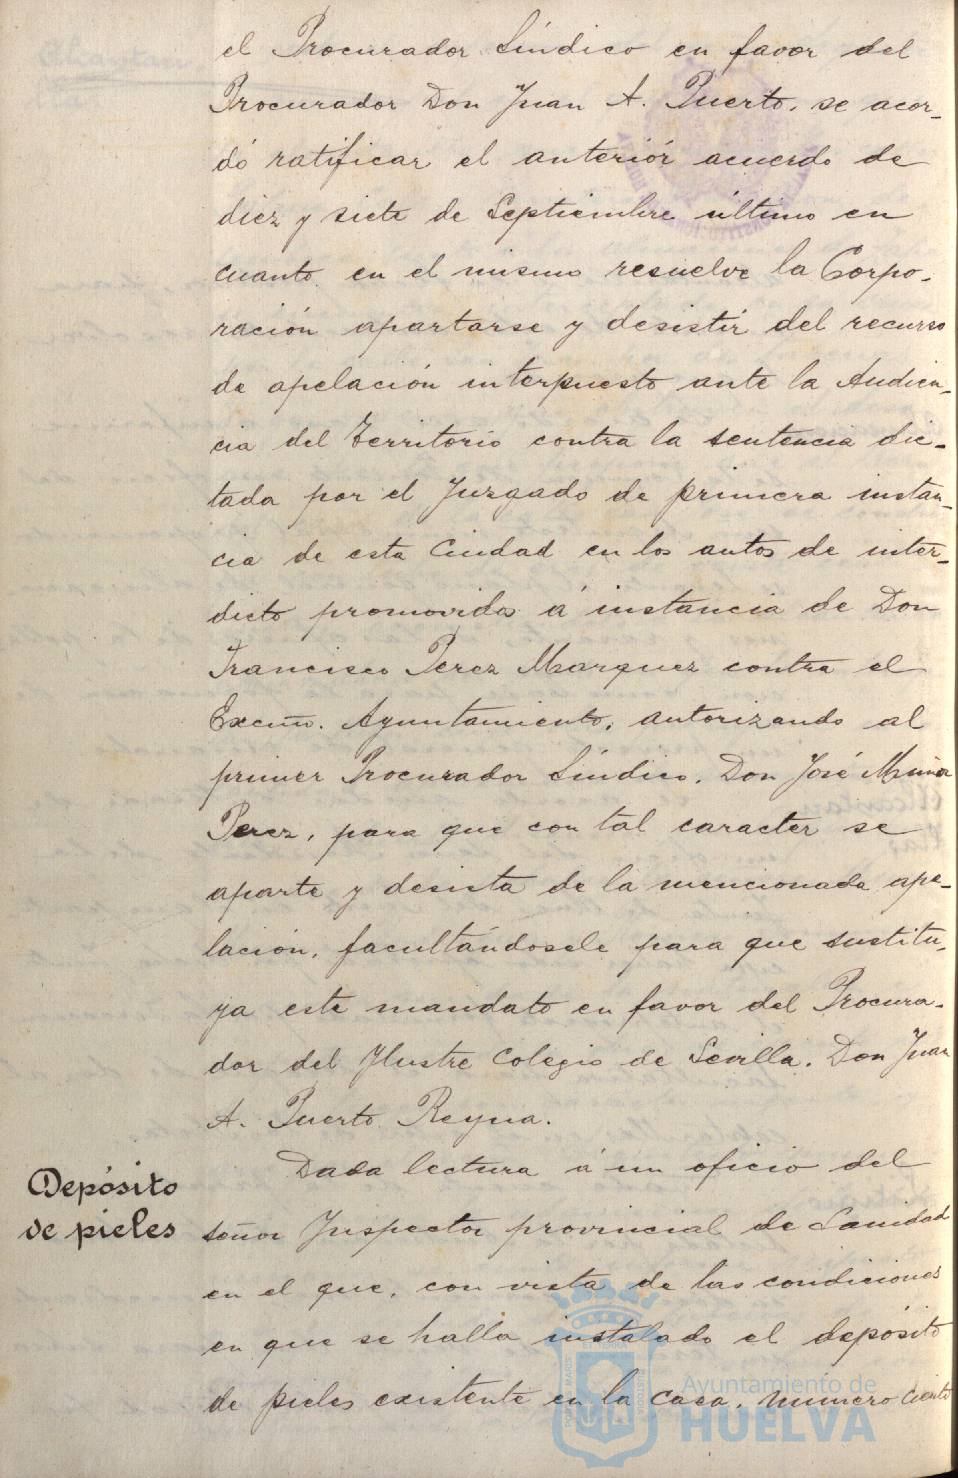 el Procurador Síndico en favor del
Procurador Don Juan A. Puerto, se acor-
dó ratificar el anteriór acuerdo de
diez y siete de Septiembre último en
cuanto en el mismo resuelve la Corpo-
ración apartarse y desistir del recurso
de apelación interpuesto ante la Audien-
cia del Territorio contra la sentencia dic-
tada por el Juzgado de primera instan-
cia de esta Ciudad en los autos de inter-
dicto promovidos á instancia de Don
Francisco Perez Marquez contra el
Excmo. Ayuntamiento, autorizando al
primer Procurador Síndico, Don José
Perez, para que con tal caracter se
aparte y desista de la mencionada ape-
lación, facultándosele para que sustitu-
ya este mandato en favor del Procura-
dor del Ilustre Colegio de Sevilla, Don Juan
A. Puerto Reyna.
Depósito
de pieles
Dada lectura á un oficio del
señor Inspector provincial de Sanidad
en el que, con vista de las condiciones
en que se halla instalado el depósito
de pieles existente en la casa, número ciento
Ayuntamiento de
HUELVA